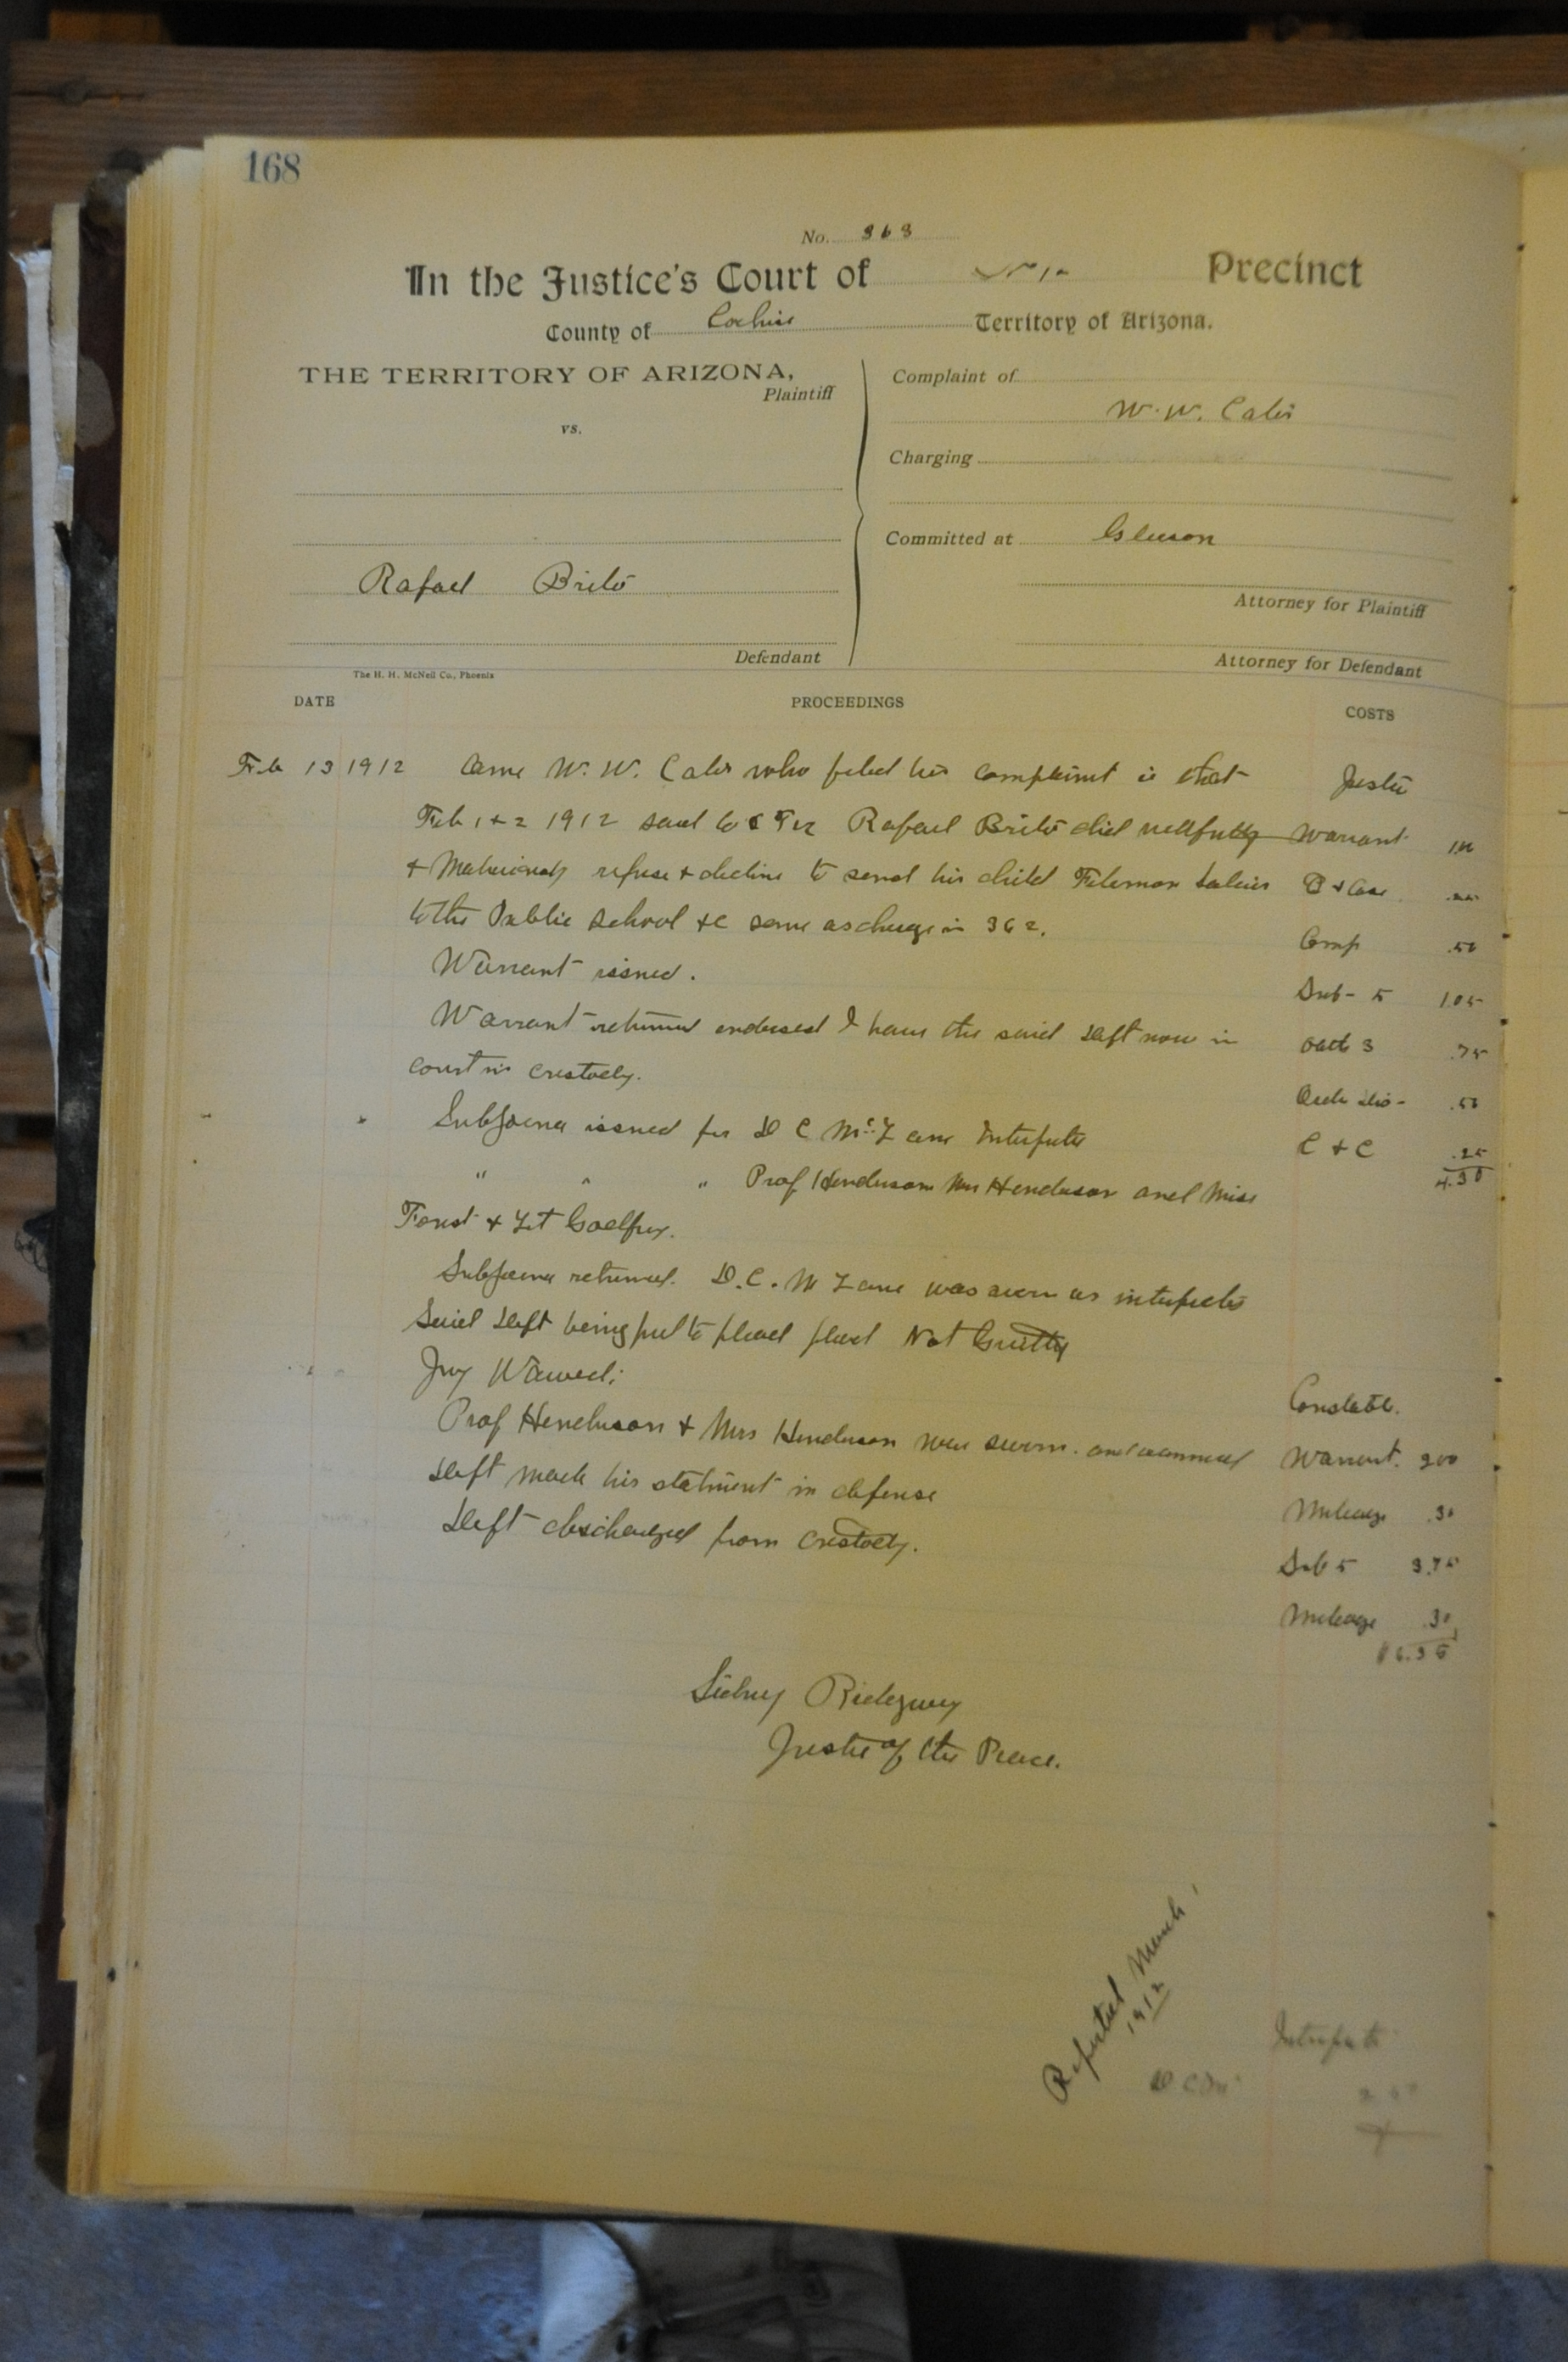 168
No. 363
In the Justice's Court of No 12 Precinct
County of Cochise Territory of Arizona.
THE TERRITORY OF ARIZONA,
Plaintiff
vs.
Rafael Brito
Defendant
Complaint of
W. W. Cates
Charging
Committed at Gleeson
Attorney for Plaintiff
Attorney for Defendant
The H. H. McNeil Co., Phoenix
DATE PROCEEDINGS COSTS
Feb 13 1912 Came W. W. Cates who filed his complaint is that
Feb 1 + 2 1912 said Rafael Brito did willfully
+ refuse + decline to send his child Filemon
to the Public School &c same as charge in 362.
Warrant issued.
Warrant returned endorsed I have the said Deft now in
court in custody.
Subpoena issued for D C McZane Interpeter
" " " Prof Henderson Mrs Henderson and Miss
+ Godfrey.
Subpoena returned. D. C. Mc Zane was sworn as interpeter
Said Deft being put to plead plead Not Guilty
Jury Waived;
Prof Henderson + Mrs Henderson was sworn. and examined
Deft made his statment in defense
Deft discharged from custody.
Sidney Ridgway
Justice of the Peace.
Justice
Warrant 1.00
.25
Comp .50
Sub - 5 1.05
Oath 3 .75
.50
C + C .25
4.30
Constable.
Warrant. 2 00
Mileage .30
Sub 5 3.75
Mileage .30
$6.35
Reported March 1
1912
D C Mc
Interpeter